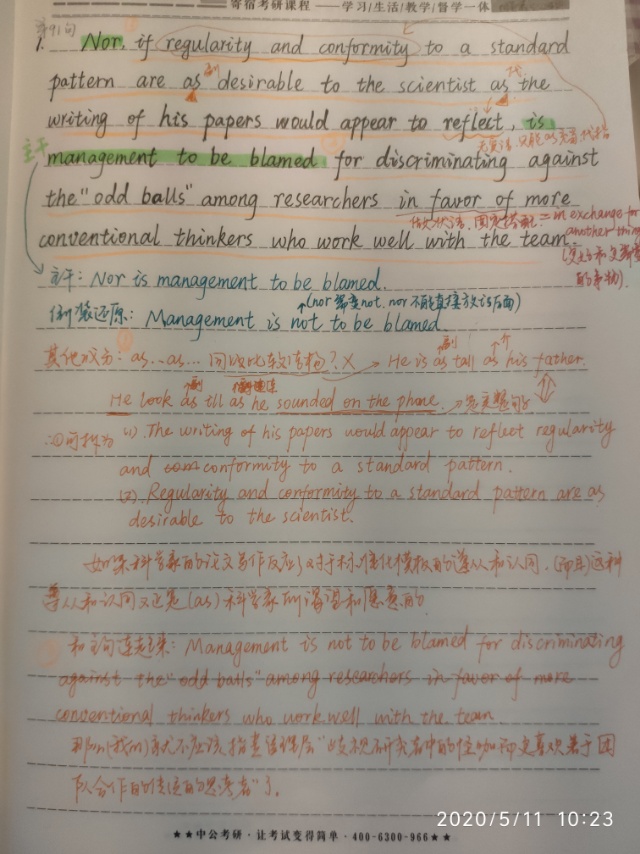 寄宿考研课程 ——学习/生活/教学/督学一体
第91句
1. Nor, if regularity and conformity to a standard
pattern are as desirable to the scientist as the
副
代
writing of his papers would appear to reflect, is
management to be blamed for discriminating against
主干
the "odd balls" among researchers in favor of more
做状语, 固定搭配, = in exchange for another thing
conventional thinkers who work well with the team.
主干: Nor is management to be blamed.
(nor 需变not, nor 不能直接放后面)
倒装还原: Management is not to be blamed.
其他成分: as...as... 同级比较结构? X → He is as tall as his father.
副
介
He look as tll as he sounded on the phone. →
副
(1) The writing of his papers would appear to reflect regularity
and com conformity to a standard pattern.
(2) Regularity and conformity to a standard pattern are as
desirable to the scientist.
如果科学家的论文写作反应了对于标准化模板的遵从和认同, (而且)这种
遵从和认同又还是(as)科学家所渴望和愿意的
和主句连起来: Management is not to be blamed for discriminating
against the "odd balls" among researchers in favor of more
conventional thinkers who work well with the team.
那么(我们)就不应该指责管理层"歧视研究者中的怪咖而更喜欢善于团
队合作的传统的思考者"了.
2020/5/11 10:23
★★中公考研·让考试变得简单·400-6300-966★★